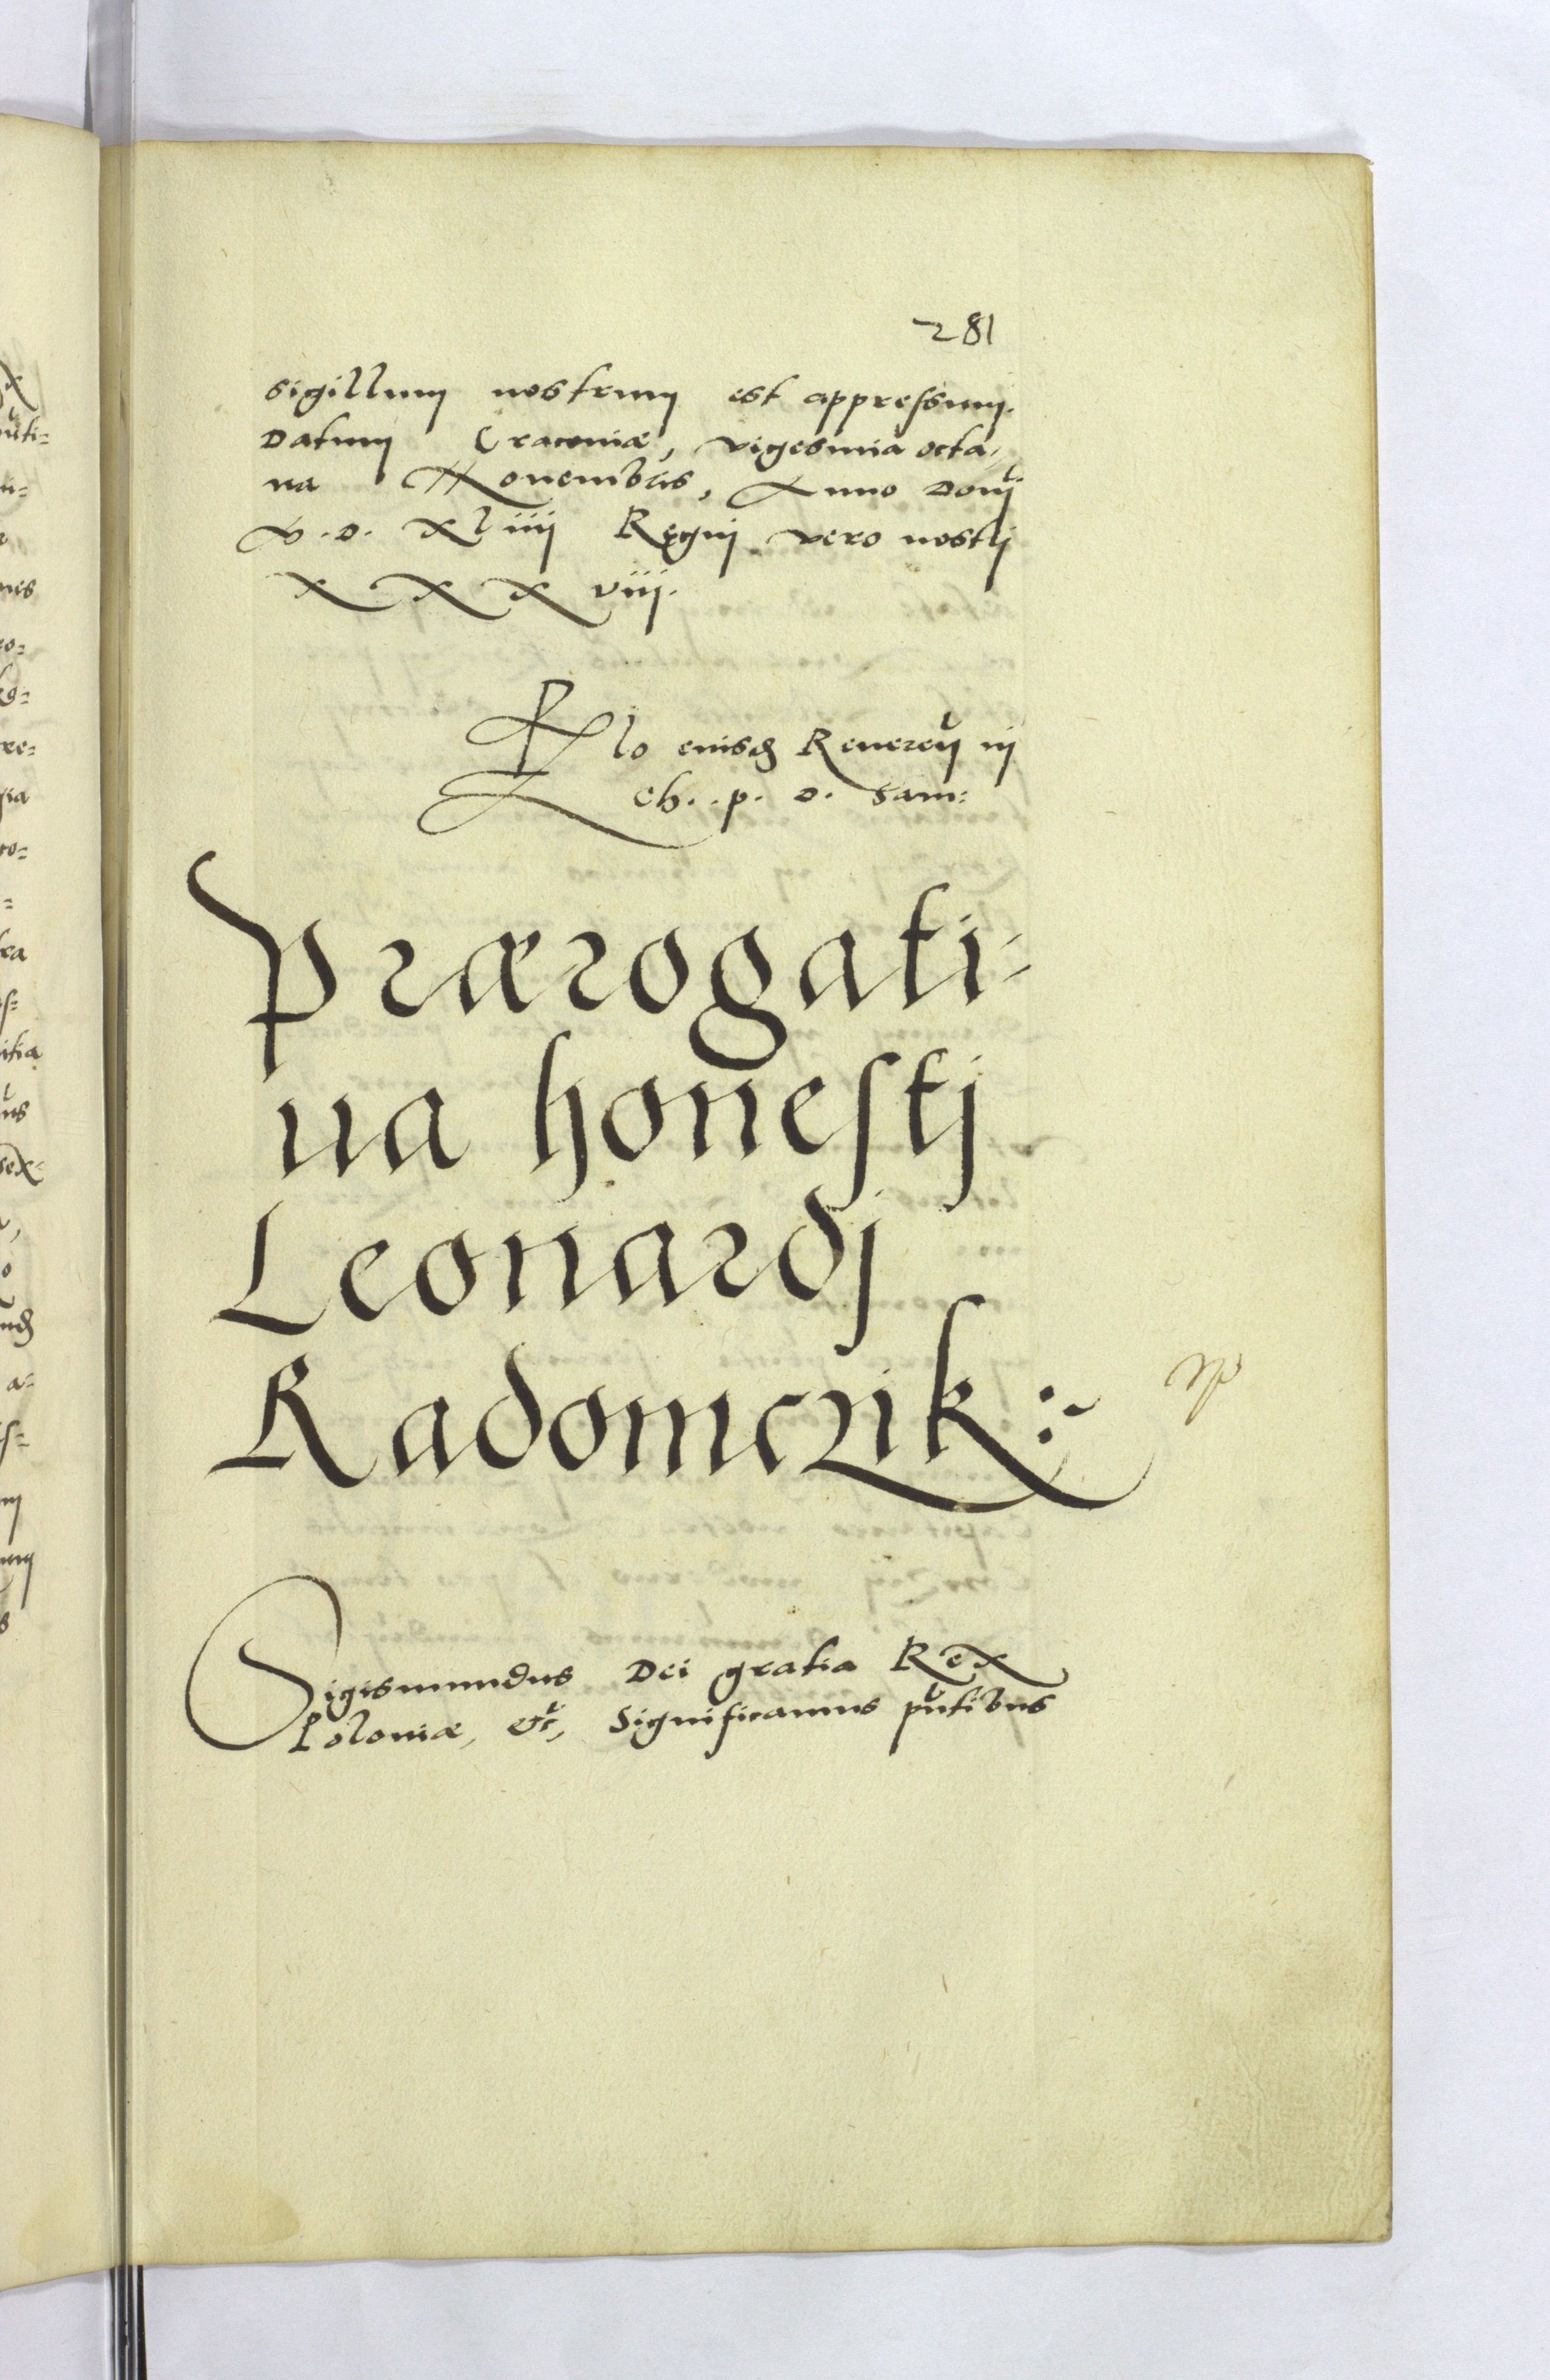 281
sigillum nostrum est appressum.
Datum Cracoviæ, vigesima octa,
ua Nouembris, Anno Domĩ
D. XLiiij Regni vero nostrj
XXXviij.
Rlo eiusd Reuereñ in
ch. p. D. Sam:
Prærogati-
ua honestj
Leonardj
Radomczik :~
Sigismundus Dei gratia Rex
Poloniæ, etc, Significamus pñtibus